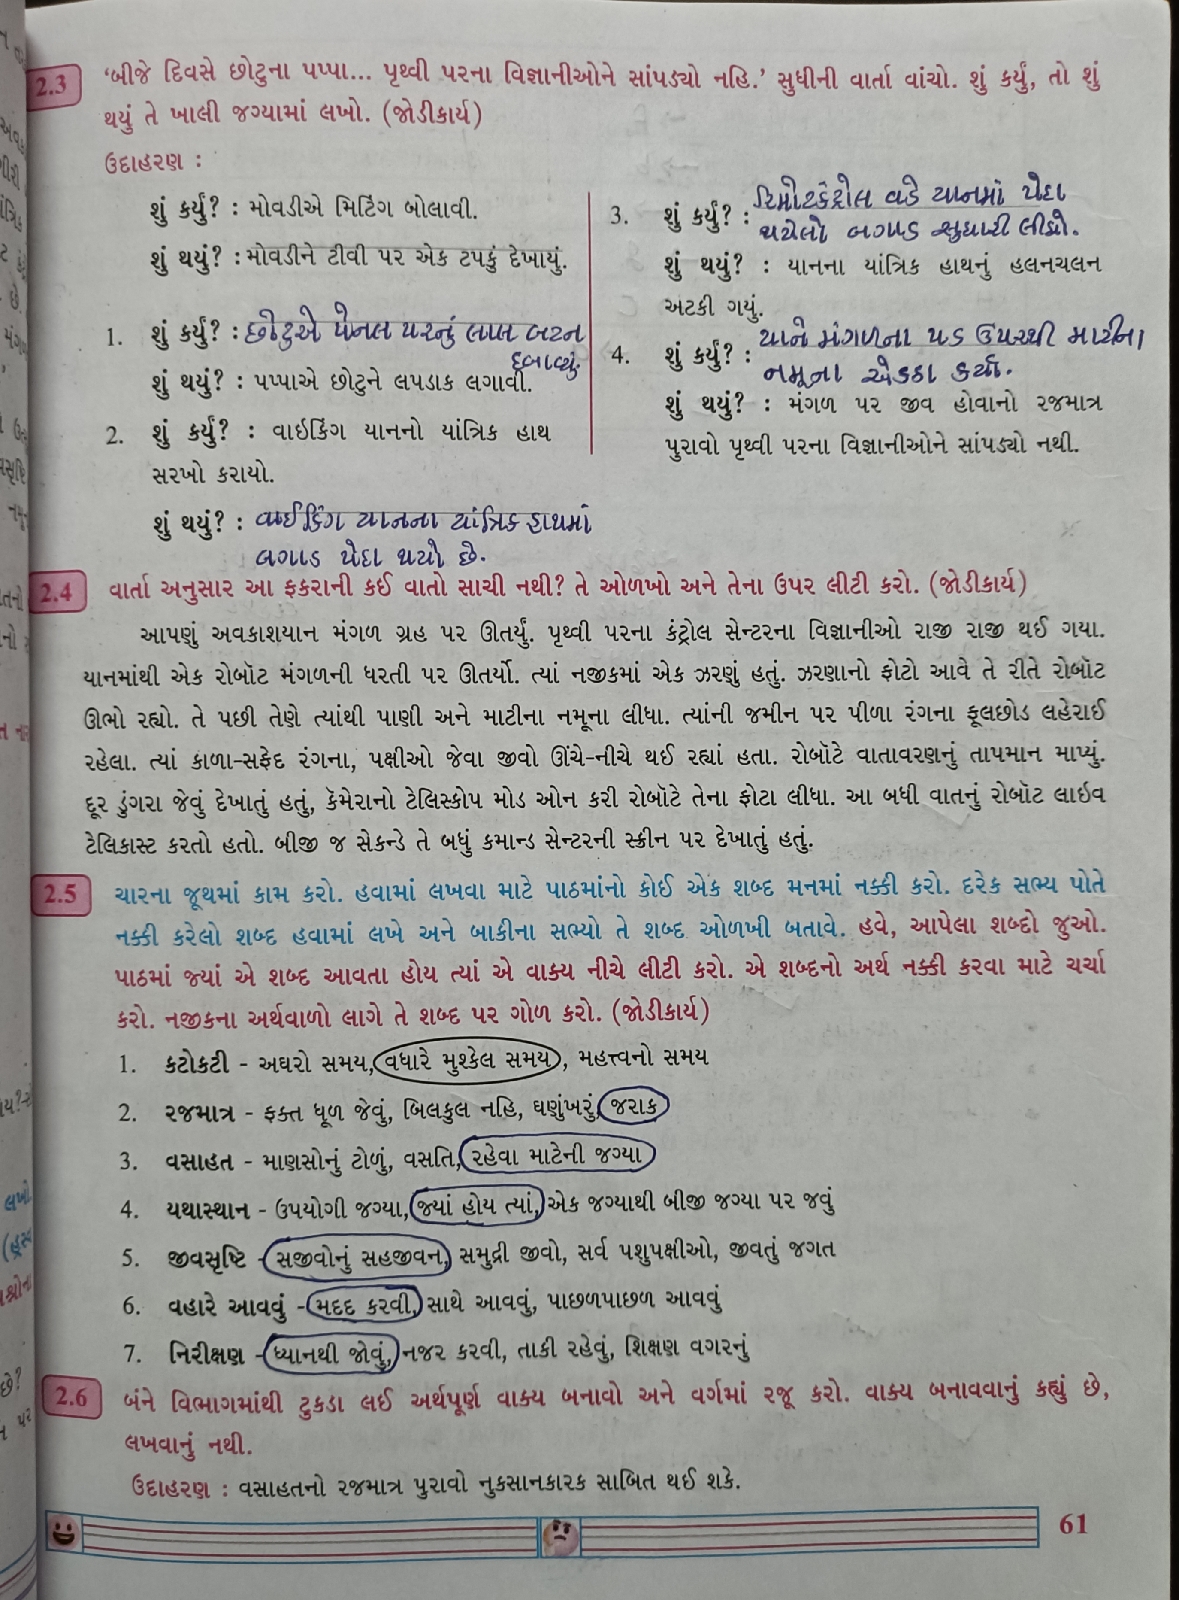 2.3 ‘બીજે દિવસે છોટુના પપ્પા... પૃથ્વી પરના વિજ્ઞાનીઓને સાંપડ્યો નહિ.’ સુધીની વાર્તા વાંચો. શું કર્યું, તો શું
થયું તે ખાલી જગ્યામાં લખો. (જોડીકાર્ય)
ઉદાહરણ :
શું કર્યું? : મોવડીએ મિટિંગ બોલાવી.
શું થયું? : મોવડીને ટીવી પર એક ટપકું દેખાયું.
1. શું કર્યું? : છોટુએ પેનલ પરનું લાલ બટન
દબાવ્યું.
શું થયું? : પપ્પાએ છોટુને લપડાક લગાવી.
2. શું કર્યું? : વાઇકિંગ યાનનો યાંત્રિક હાથ
સરખો કરાયો.
શું થયું? : વાઈકિંગ યાનના યાંત્રિક હાથમાં
બગાડ પેદા થયો છે.
3. શું કર્યું? : રિમોટકંટ્રોલ વડે યાનમાં પેદા
થયેલો બગાડ સુધારી લીધો.
શું થયું? : યાનના યાંત્રિક હાથનું હલનચલન
અટકી ગયું.
4. શું કર્યું? : યાને મંગળના પડ ઉપરથી માટીના
નમૂના એકઠા કર્યા.
શું થયું? : મંગળ પર જીવ હોવાનો રજમાત્ર
પુરાવો પૃથ્વી પરના વિજ્ઞાનીઓને સાંપડ્યો નથી.
2.4 વાર્તા અનુસાર આ ફકરાની કઈ વાતો સાચી નથી? તે ઓળખો અને તેના ઉપર લીટી કરો. (જોડીકાર્ય)
આપણું અવકાશયાન મંગળ ગ્રહ પર ઊતર્યું. પૃથ્વી પરના કંટ્રોલ સેન્ટરના વિજ્ઞાનીઓ રાજી રાજી થઈ ગયા.
યાનમાંથી એક રોબૉટ મંગળની ધરતી પર ઊતર્યો. ત્યાં નજીકમાં એક ઝરણું હતું. ઝરણાનો ફોટો આવે તે રીતે રોબૉટ
ઊભો રહ્યો. તે પછી તેણે ત્યાંથી પાણી અને માટીના નમૂના લીધા. ત્યાંની જમીન પર પીળા રંગના ફૂલછોડ લહેરાઈ
રહેલા. ત્યાં કાળા-સફેદ રંગના, પક્ષીઓ જેવા જીવો ઊંચે-નીચે થઈ રહ્યાં હતા. રોબૉટે વાતાવરણનું તાપમાન માપ્યું.
દૂર ડુંગરા જેવું દેખાતું હતું, કૅમેરાનો ટેલિસ્કોપ મોડ ઓન કરી રોબૉટે તેના ફોટા લીધા. આ બધી વાતનું રોબૉટ લાઇવ
ટેલિકાસ્ટ કરતો હતો. બીજી જ સેકન્ડે તે બધું કમાન્ડ સેન્ટરની સ્ક્રીન પર દેખાતું હતું.
2.5 ચારના જૂથમાં કામ કરો. હવામાં લખવા માટે પાઠમાંનો કોઈ એક શબ્દ મનમાં નક્કી કરો. દરેક સભ્ય પોતે
નક્કી કરેલો શબ્દ હવામાં લખે અને બાકીના સભ્યો તે શબ્દ ઓળખી બતાવે. હવે, આપેલા શબ્દો જુઓ.
પાઠમાં જ્યાં એ શબ્દ આવતા હોય ત્યાં એ વાક્ય નીચે લીટી કરો. એ શબ્દનો અર્થ નક્કી કરવા માટે ચર્ચા
કરો. નજીકના અર્થવાળો લાગે તે શબ્દ પર ગોળ કરો. (જોડીકાર્ય)
1. કટોકટી - અઘરો સમય, વધારે મુશ્કેલ સમય, મહત્ત્વનો સમય
2. રજમાત્ર - ફક્ત ધૂળ જેવું, બિલકુલ નહિ, ઘણુંખરું, જરાક
3. વસાહત - માણસોનું ટોળું, વસતિ, રહેવા માટેની જગ્યા
4. યથાસ્થાન - ઉપયોગી જગ્યા, જ્યાં હોય ત્યાં, એક જગ્યાથી બીજી જગ્યા પર જવું
5. જીવસૃષ્ટિ - સજીવોનું સહજીવન, સમુદ્રી જીવો, સર્વ પશુપક્ષીઓ, જીવતું જગત
6. વહારે આવવું - મદદ કરવી, સાથે આવવું, પાછળપાછળ આવવું
7. નિરીક્ષણ - ધ્યાનથી જોવું, નજર કરવી, તાકી રહેવું, શિક્ષણ વગરનું
2.6 બંને વિભાગમાંથી ટુકડા લઈ અર્થપૂર્ણ વાક્ય બનાવો અને વર્ગમાં રજૂ કરો. વાક્ય બનાવવાનું કહ્યું છે,
લખવાનું નથી.
ઉદાહરણ : વસાહતનો રજમાત્ર પુરાવો નુકસાનકારક સાબિત થઈ શકે.
61